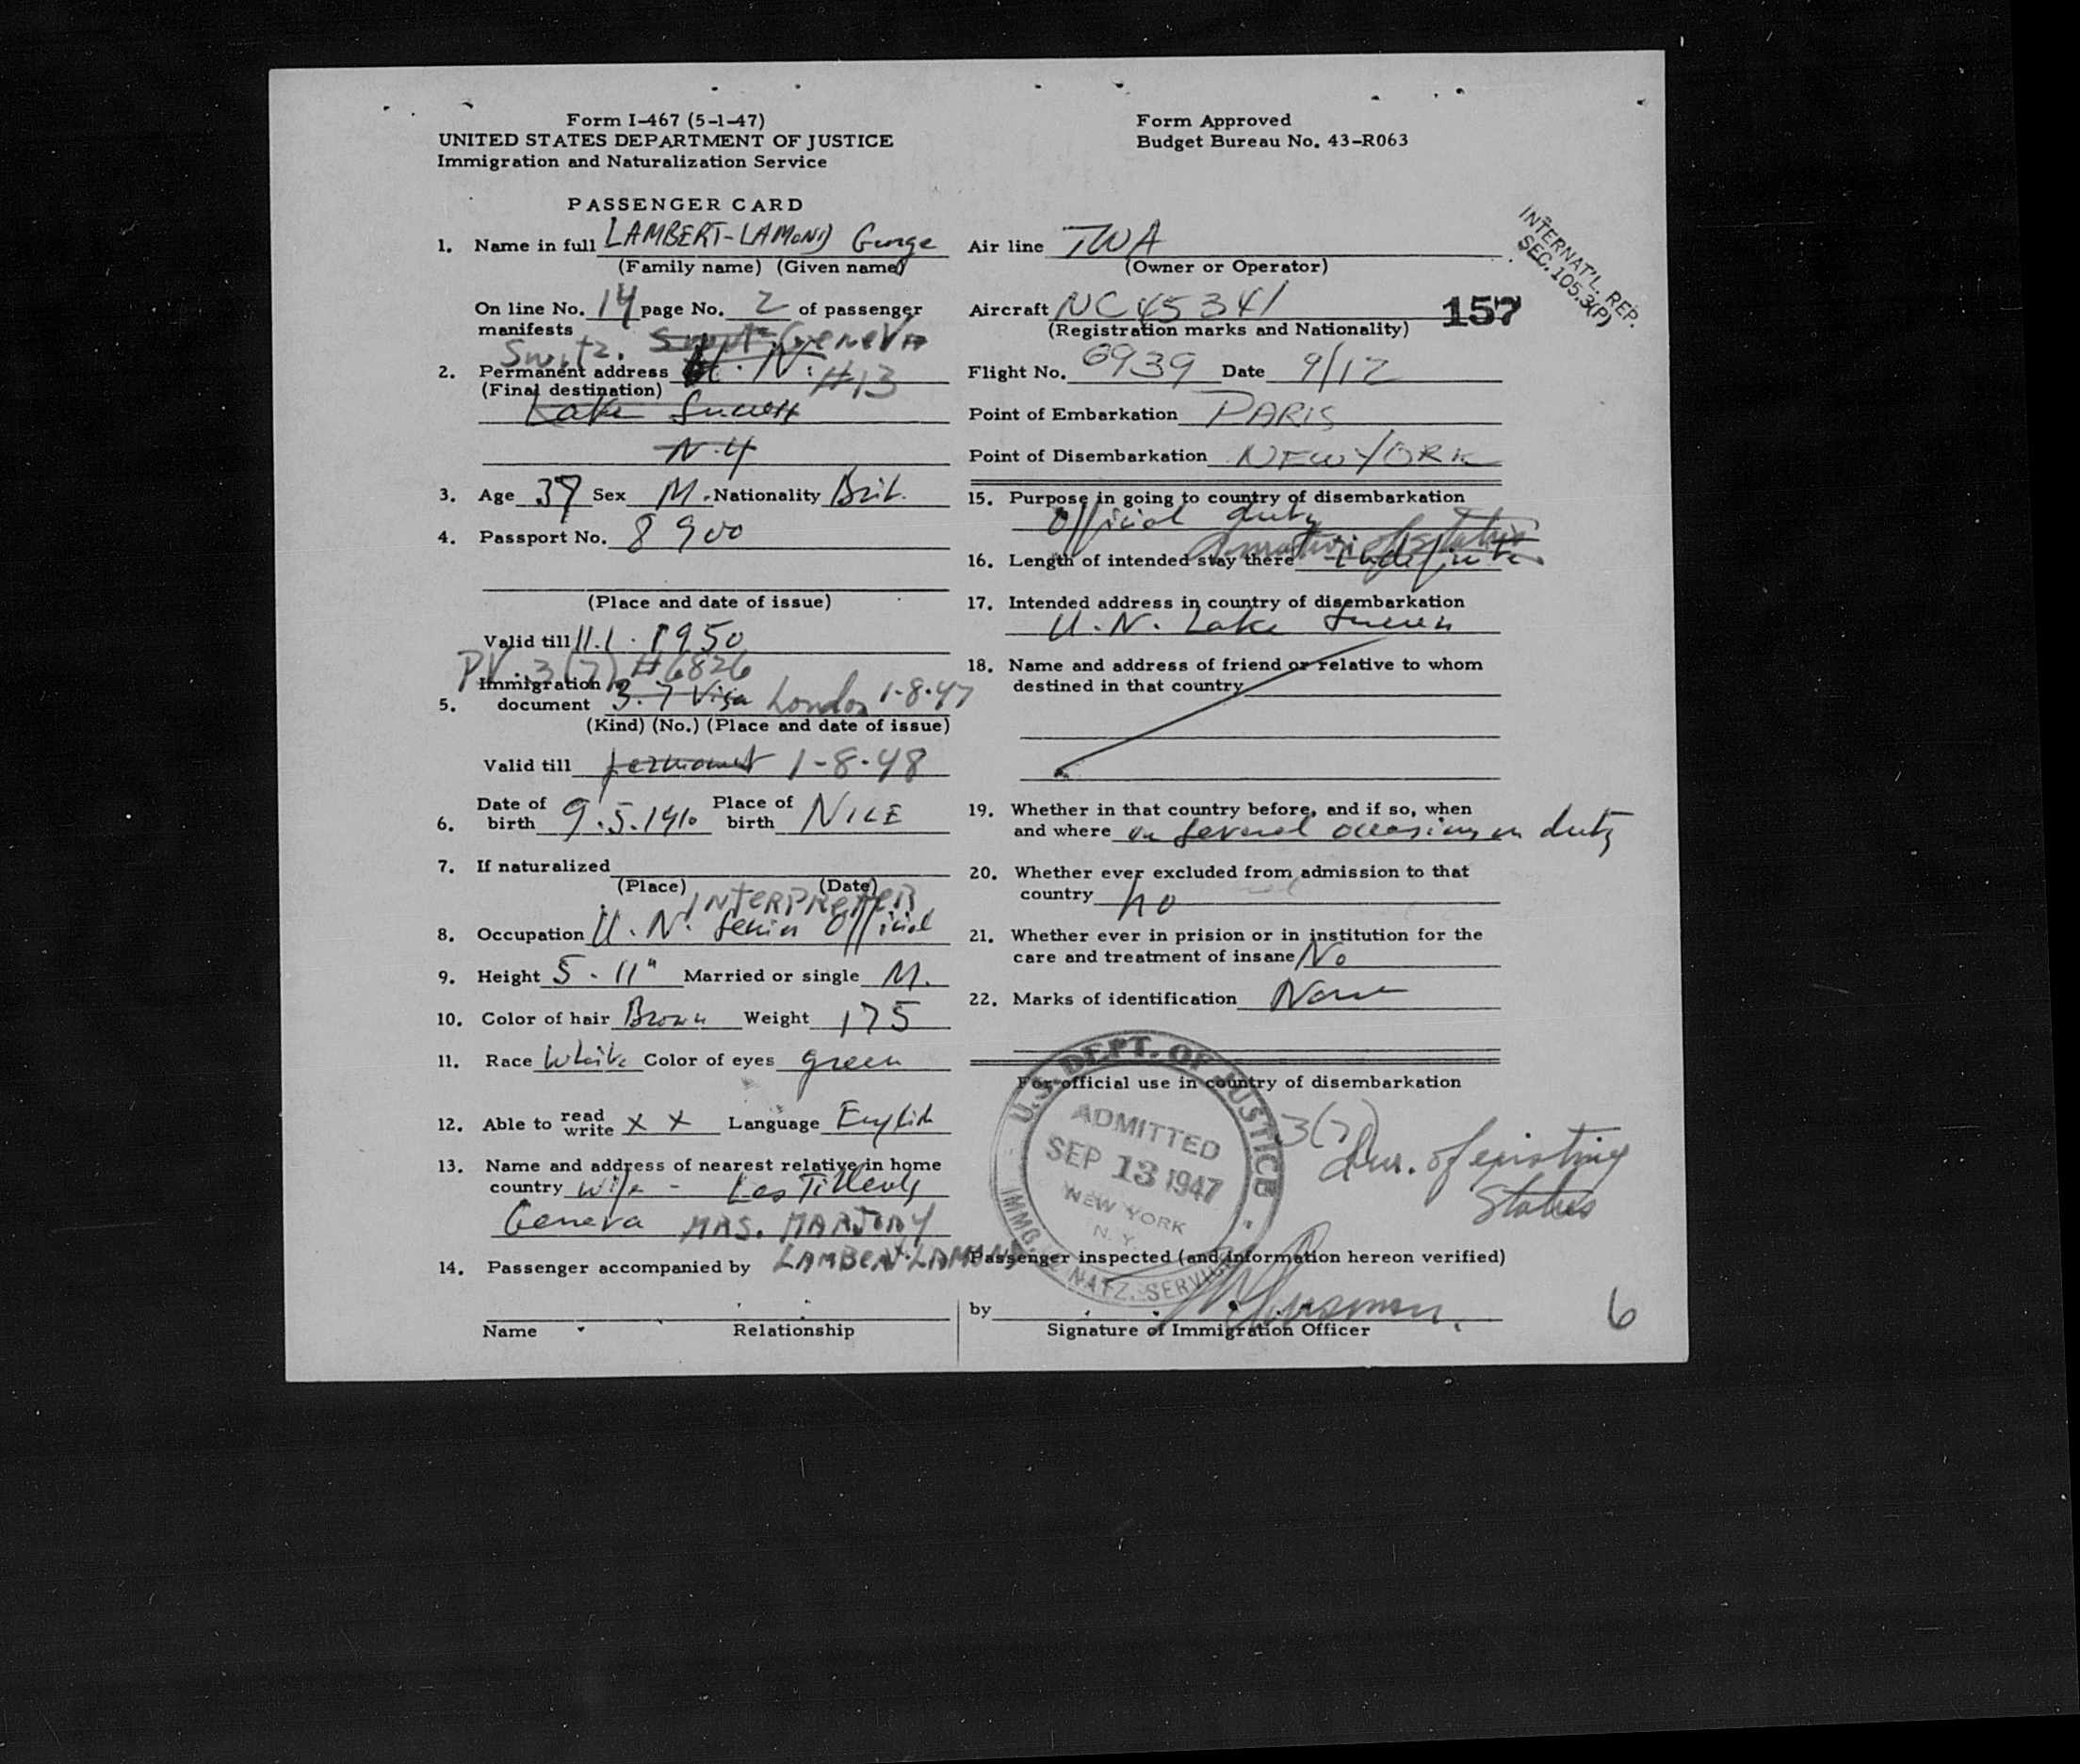 Form I-467 (5-1-47)
UNITED STATES DEPARTMENT OF JUSTICE
Immigration and Naturalization Service
PASSENGER CARD
1. Name in full LAMBERT-LAMOND George
(Family name) (Given name)
On line No. 14 page No. 2 of passenger
manifests
Switz. Geneva
2. Permanent address U.N. #13
(Final destination)
Lake Success
N.Y
3. Age 37 Sex M. Nationality Brit.
4. Passport No. 8900
(Place and date of issue)
Valid till 11.1.1950
PV. 3(7) #6826
Immigration
5. document 3.7 Visa London 1-8-47
(Kind) (No.) (Place and date of issue)
Valid till permanent 1-8-48
Date of Place of
6. birth 9.5.1910 birth NICE
7. If naturalized
(Place) (Date)
INTERPRETER
8. Occupation U.N. Senior Official
9. Height 5-11" Married or single M.
10. Color of hair Brown Weight 175
11. Race White Color of eyes green
12. Able to read write x x Language English
13. Name and address of nearest relative in home
country wife - Les Tilleuls
Geneva MRS. MARJORY
LAMBERT-LAMOND
14. Passenger accompanied by
Name Relationship
Form Approved
Budget Bureau No. 43-R063
INTERNAT'L. REP.
SEC. 105.3(P)
Air line TWA
(Owner or Operator)
Aircraft NC45341 157
(Registration marks and Nationality)
Flight No. 6939 Date 9/12
Point of Embarkation PARIS
Point of Disembarkation NEW YORK
15. Purpose in going to country of disembarkation
Official duty
duration of status
16. Length of intended stay there indefinite
17. Intended address in country of disembarkation
U.N. Lake Success
18. Name and address of friend or relative to whom
destined in that country
19. Whether in that country before, and if so, when
and where on several occasions on duty
20. Whether ever excluded from admission to that
country no
21. Whether ever in prision or in institution for the
care and treatment of insane No
22. Marks of identification None
For official use in country of disembarkation
U.S. DEPT. OF JUSTICE
ADMITTED
SEP 13 1947
NEW YORK
N.Y.
IMMG. & NATZ. SERVICE
3(7)
Dur. of existing
Status
Passenger inspected (and information hereon verified)
by
Signature of Immigration Officer
6